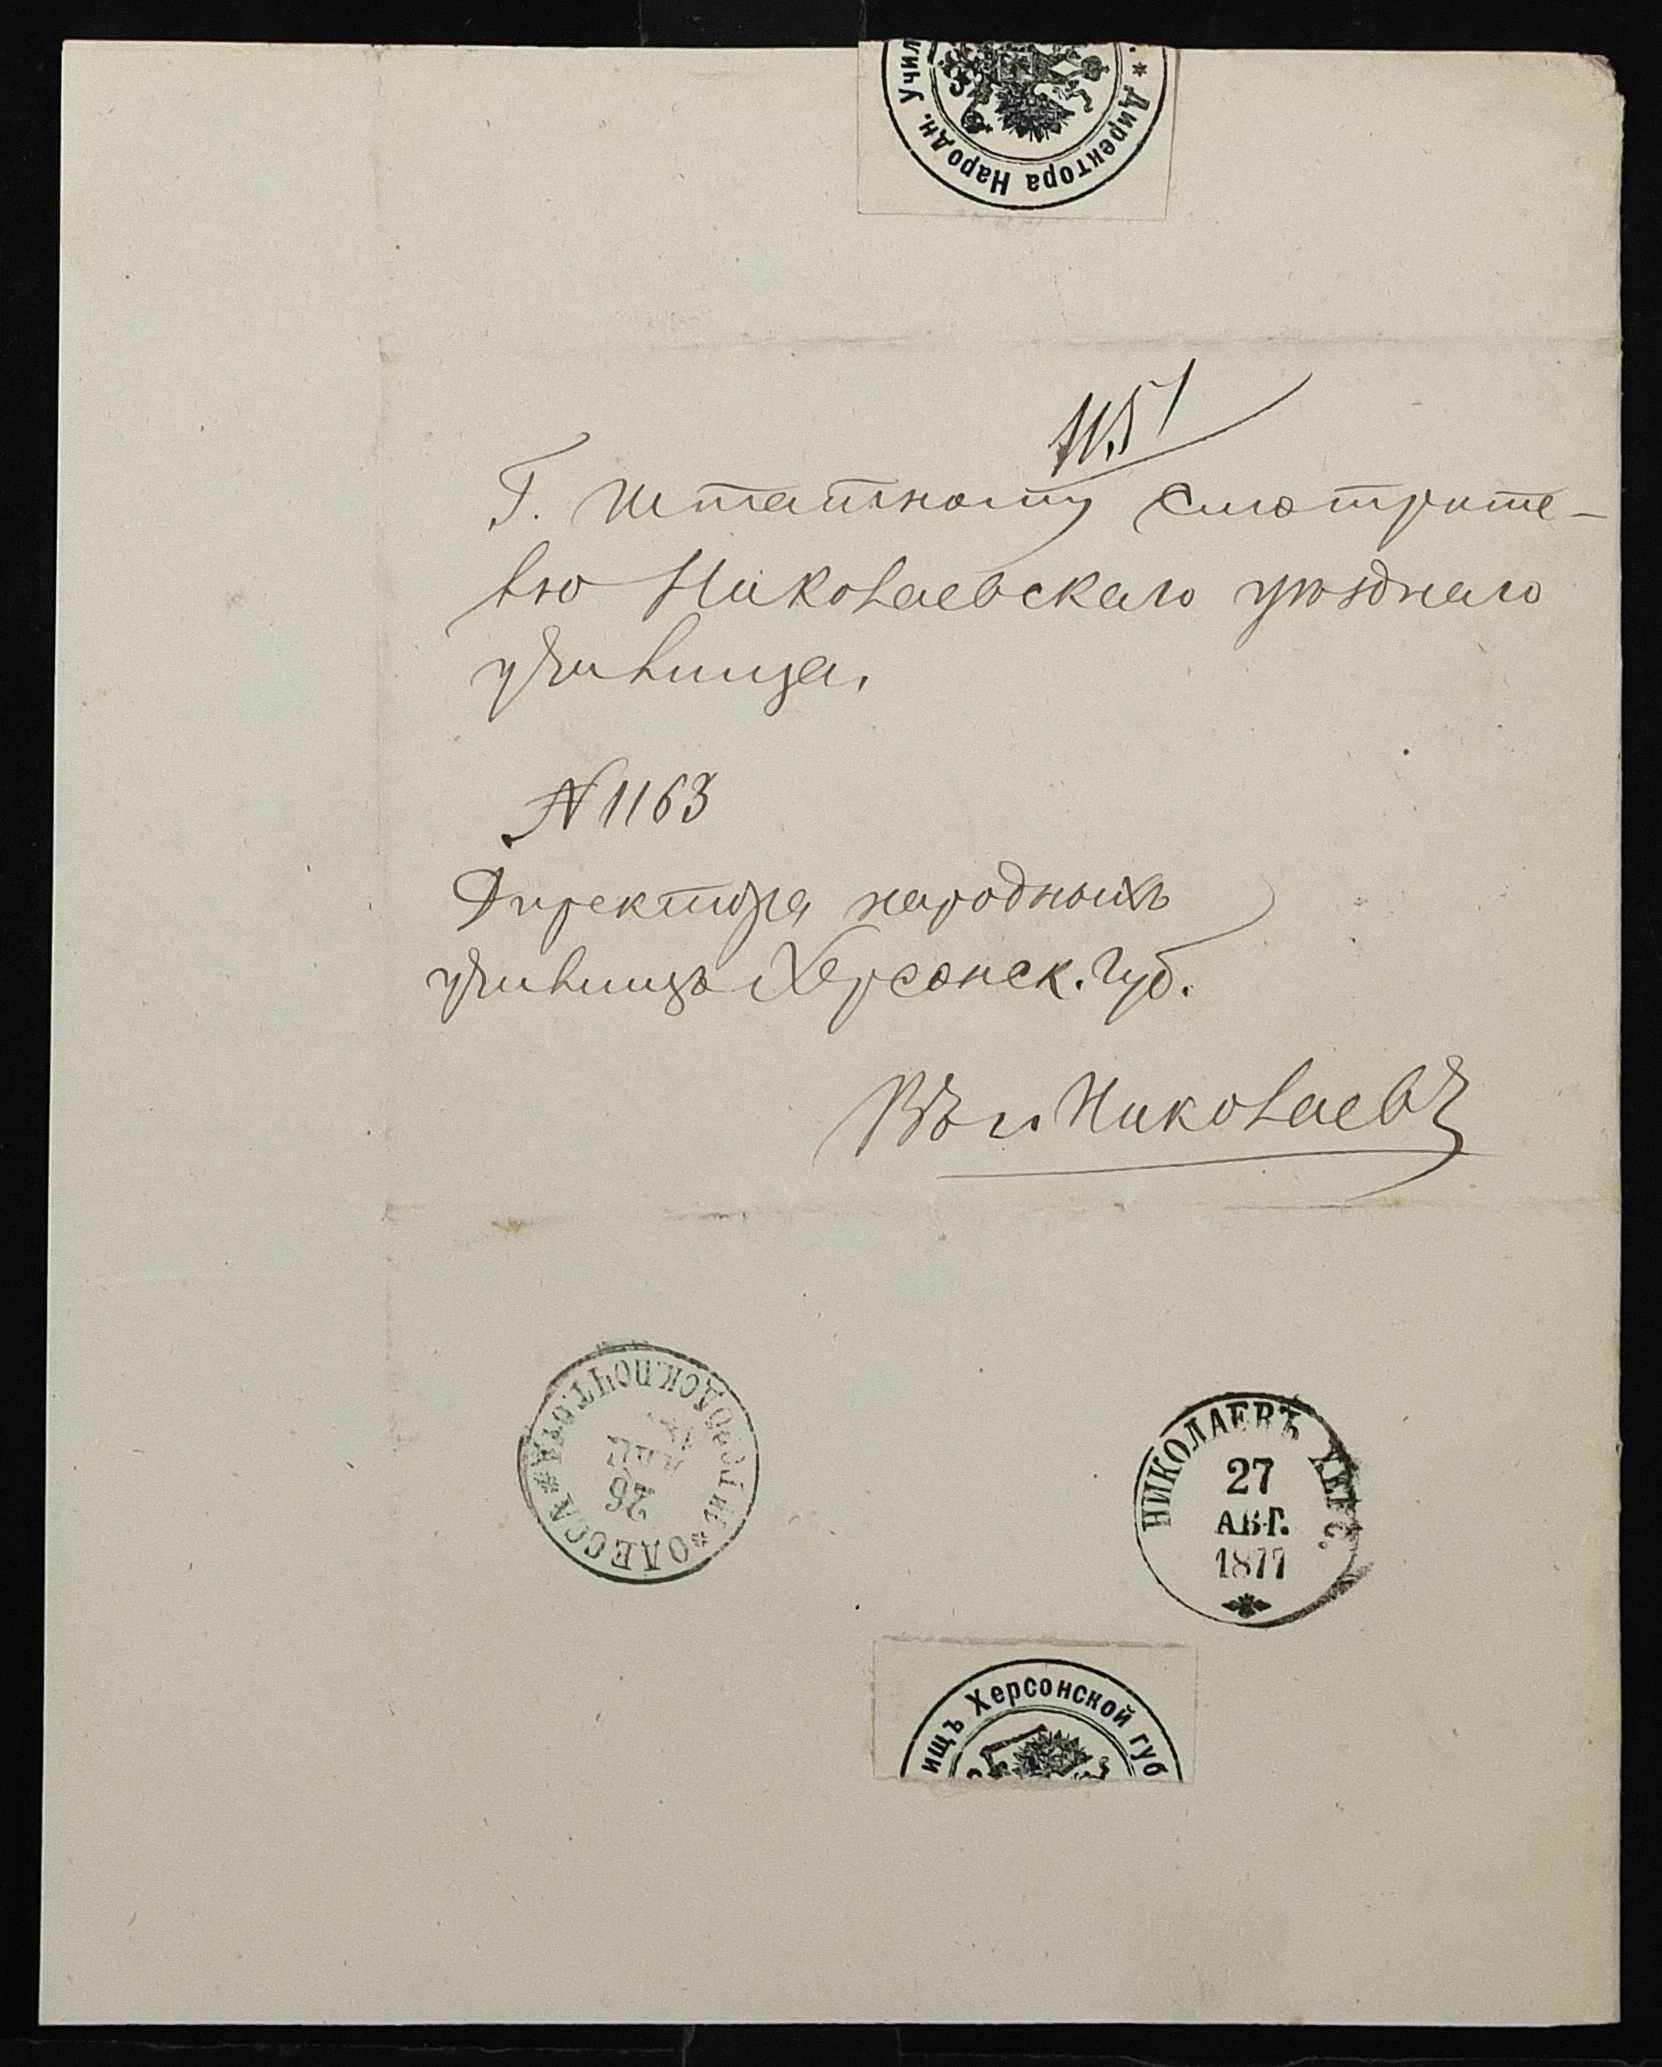 * Директора Народн. Учил
№ 51
Г. Штатному смотрите-
лю Николаевскаго уѣзднаго
училища.
N 1163
Директора народныхъ
училищъ Херсонск. Губ.
Въ г. Николаевъ
ОДЕССА * ГОРОДСК. ПОЧТ. *
26
НИКОЛАЕВЪ ХЕРС.
27
АВГ.
1877
ищъ Херсонской губ